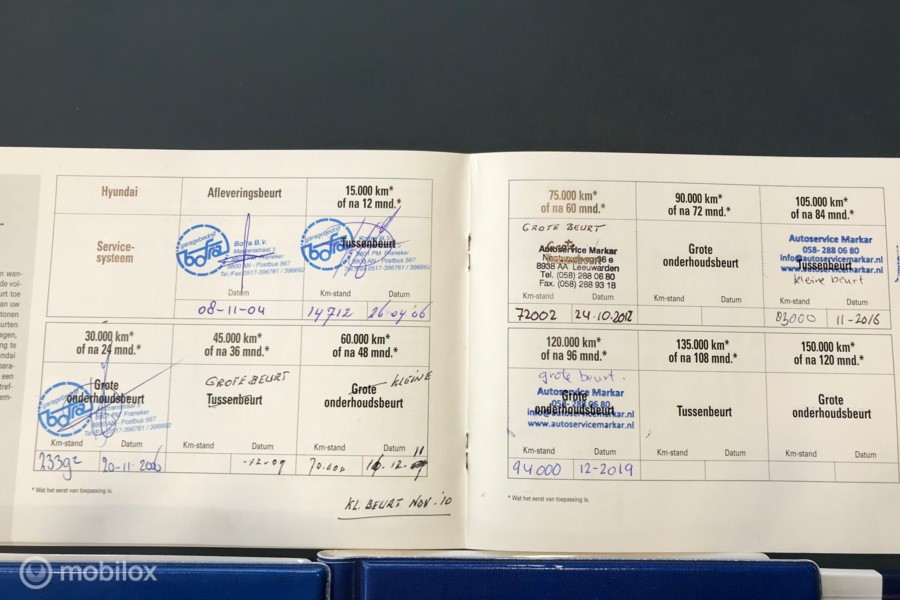 Hyundai
Service-
systeem
Afleveringsbeurt
Garagebedrijf
bofra
Bofra B.V.
8800 AN - Postbus 567
Datum
08-11-04
15.000 km*
of na 12 mnd.*
Tussenbeurt
bofra
8800 AN - Postbus 567
Km-stand Datum
14712
30.000 km*
of na 24 mnd.*
Grote
onderhoudsbeurt
bofra
Km-stand Datum
20-11-2006
45.000 km*
of na 36 mnd.*
GROTE BEURT
Tussenbeurt
Km-stand Datum
-12-09
60.000 km*
of na 48 mnd.*
KLEINE
Grote
onderhoudsbeurt
Km-stand Datum
70.000
* Wat het eerst van toepassing is.
KL. BEURT NOV. '10
75.000 km*
of na 60 mnd.*
GROTE BEURT
Autoservice Markar
8938 AA Leeuwarden
Tel. (058) 288 06 80
Fax. (058) 288 93 18
Km-stand Datum
72002 24.10.2012
90.000 km*
of na 72 mnd.*
Grote
onderhoudsbeurt
Km-stand Datum
105.000 km*
of na 84 mnd.*
Autoservice Markar
058- 288 06 80
info@autoservicemarkar.nl
Tussenbeurt
www.autoservicemarkar.nl
kleine beurt
Km-stand Datum
83000 11-2016
120.000 km*
of na 96 mnd.*
grote beurt.
Autoservice Markar
058- 288 06 80
Grote
info@autoservicemarkar.nl
onderhoudsbeurt
www.autoservicemarkar.nl
Km-stand Datum
94000 12-2019
135.000 km*
of na 108 mnd.*
Tussenbeurt
Km-stand Datum
150.000 km*
of na 120 mnd.*
Grote
onderhoudsbeurt
Km-stand Datum
* Wat het eerst van toepassing is.
mobilox